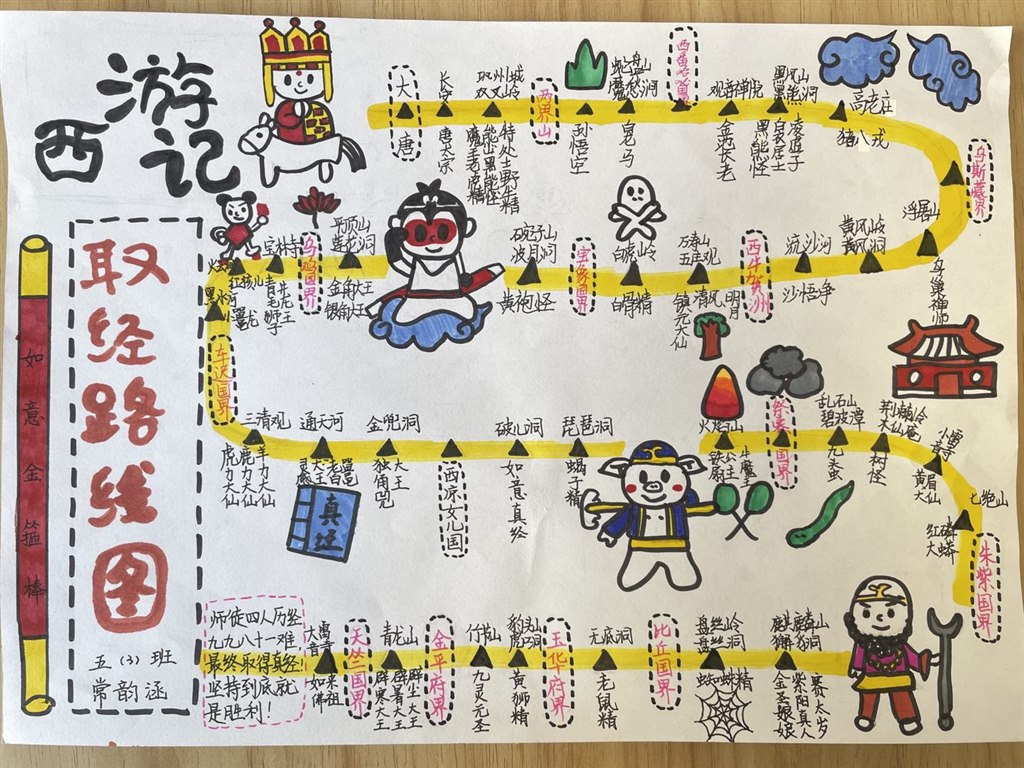 西游记
取经路线图
五(3)班
常韵涵
如意金箍棒
大唐
长安
唐太宗
双州城
双叉岭
特处士
野牛精
熊山君
黑熊精
魔王老虎精
两界山
孙悟空
蛇盘山
白马
观音禅院
金池长老
黑风山
黑熊洞
黑熊怪
白衣居士
凌虚子
高老庄
猪八戒
乌斯藏界
浮屠山
乌巢禅师
黄风岭
黄风洞
流沙河
沙悟净
西牛贺州
万寿山
五庄观
清风
明月
镇元大仙
白虎岭
白骨精
宝象国界
碗子山
波月洞
黄袍怪
平顶山
莲花洞
金角大王
银角大王
乌鸡国界
宝林寺
井龙王
青毛狮子
红孩儿
黑水河
小鼍龙
车迟国界
三清观
虎力大仙
鹿力大仙
羊力大仙
通天河
灵感大王
老鼋
金兜洞
独角兕大王
西凉女儿国
破儿洞
如意真经
琵琶洞
蝎子精
火焰山
铁扇公主
牛魔王
祭赛国界
乱石山
碧波潭
九头虫
荆棘岭
木仙庵
树怪
小雷音寺
黄眉大仙
七绝山
红鳞大蟒
朱紫国界
麒麟山
獬豸洞
赛太岁
紫阳真人
金圣娘娘
盘丝岭
盘丝洞
蜘蛛精
比丘国界
无底洞
老鼠精
玉华府界
豹头山
虎口洞
黄狮精
竹节山
九灵元圣
金平府界
青龙山
辟寒大王
辟暑大王
辟尘大王
天竺国界
如来佛祖
真经
师徒四人历经
九九八十一难
最终取得真经!
坚持到底就
是胜利!